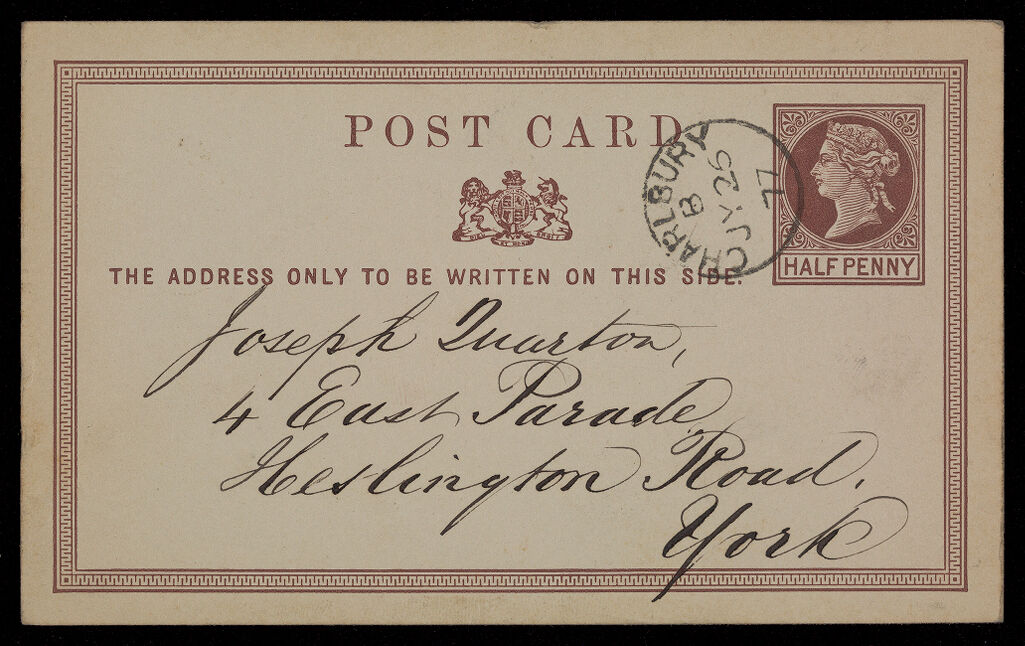 POST CARD
CHARLBURY
B
JY 25
77
HALF PENNY
THE ADDRESS ONLY TO BE WRITTEN ON THIS SIDE.
Joseph Quarton,
4 East Parade
Heslington Road.
York